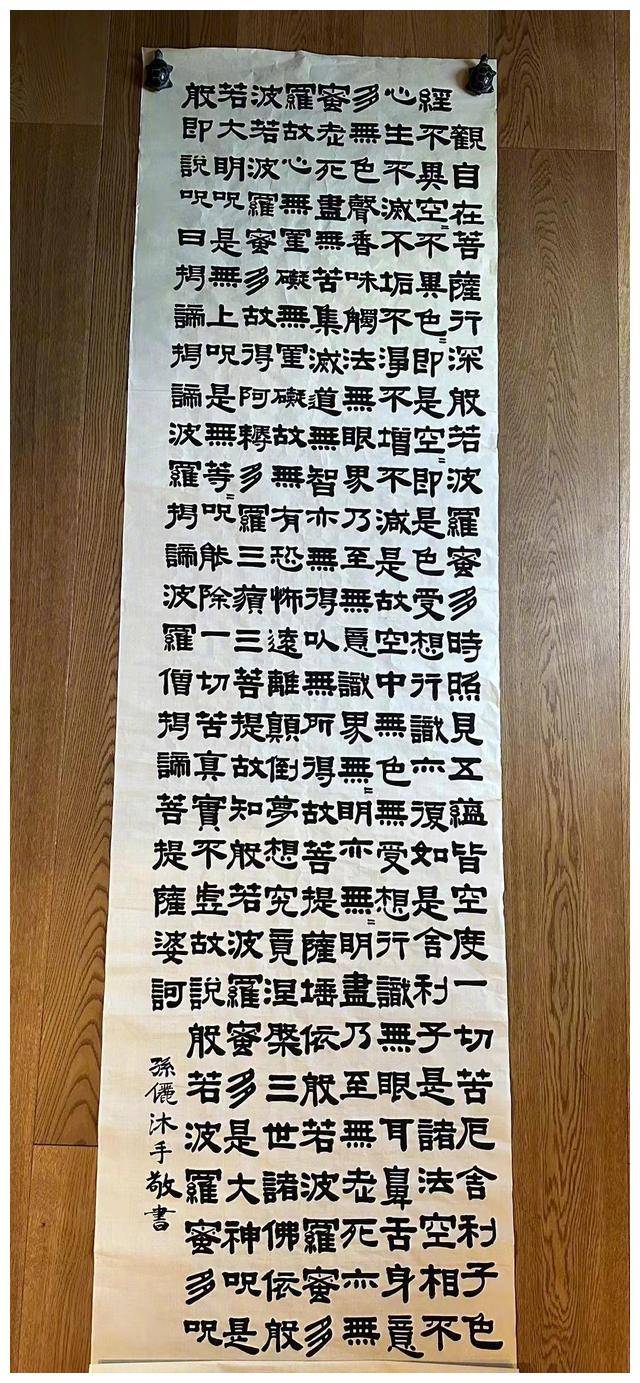 般若波羅蜜多心經
觀自在菩薩行深般若波羅蜜多時照見五蘊皆空度一切苦厄舍利子色不
異空〻不異色〻即是空〻即是色受想行識亦復如是舍利子是諸法空相不
生不滅不垢不淨不增不減是故空中無色無受想行識無眼耳鼻舌身意
無色聲香味觸法無眼界乃至無意識界無〻明亦無〻明盡乃至無老死亦無
老死盡無苦集滅道無智亦無得以無所得故菩提薩埵依般若波羅蜜多
故心無罣礙無罣礙故無有恐怖遠離顛倒夢想究竟涅槃三世諸佛依般
若波羅蜜多故得阿耨多羅三藐三菩提故知般若波羅蜜多是大神呪是
大明呪是無上呪是無等〻呪能除一切苦真實不虛故說般若波羅蜜多呪
即說呪曰揭諦揭諦波羅揭諦波羅僧揭諦菩提薩婆訶
孫儷沐手敬書